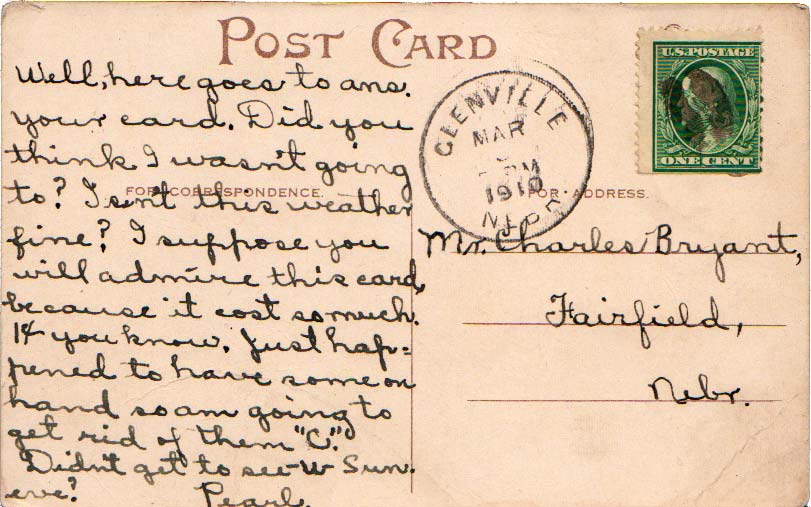 POST CARD
Well, here goes to ans.
your card. Did you
think I wasn't going
to? Isn't this weather
fine? I suppose you
will admire this card,
because it cost so much.
1¢ you know. Just hap=
pened to have some on
hand so am going to
get rid of them "C."
Didn't get to see U Sun.
eve? Pearl.
FOR CORRESPONDENCE.
GLENVILLE
MAR
1910
NEBR
U.S. POSTAGE
ONE CENT
FOR ADDRESS.
Mr. Charles Bryant,
Fairfield,
Nebr.